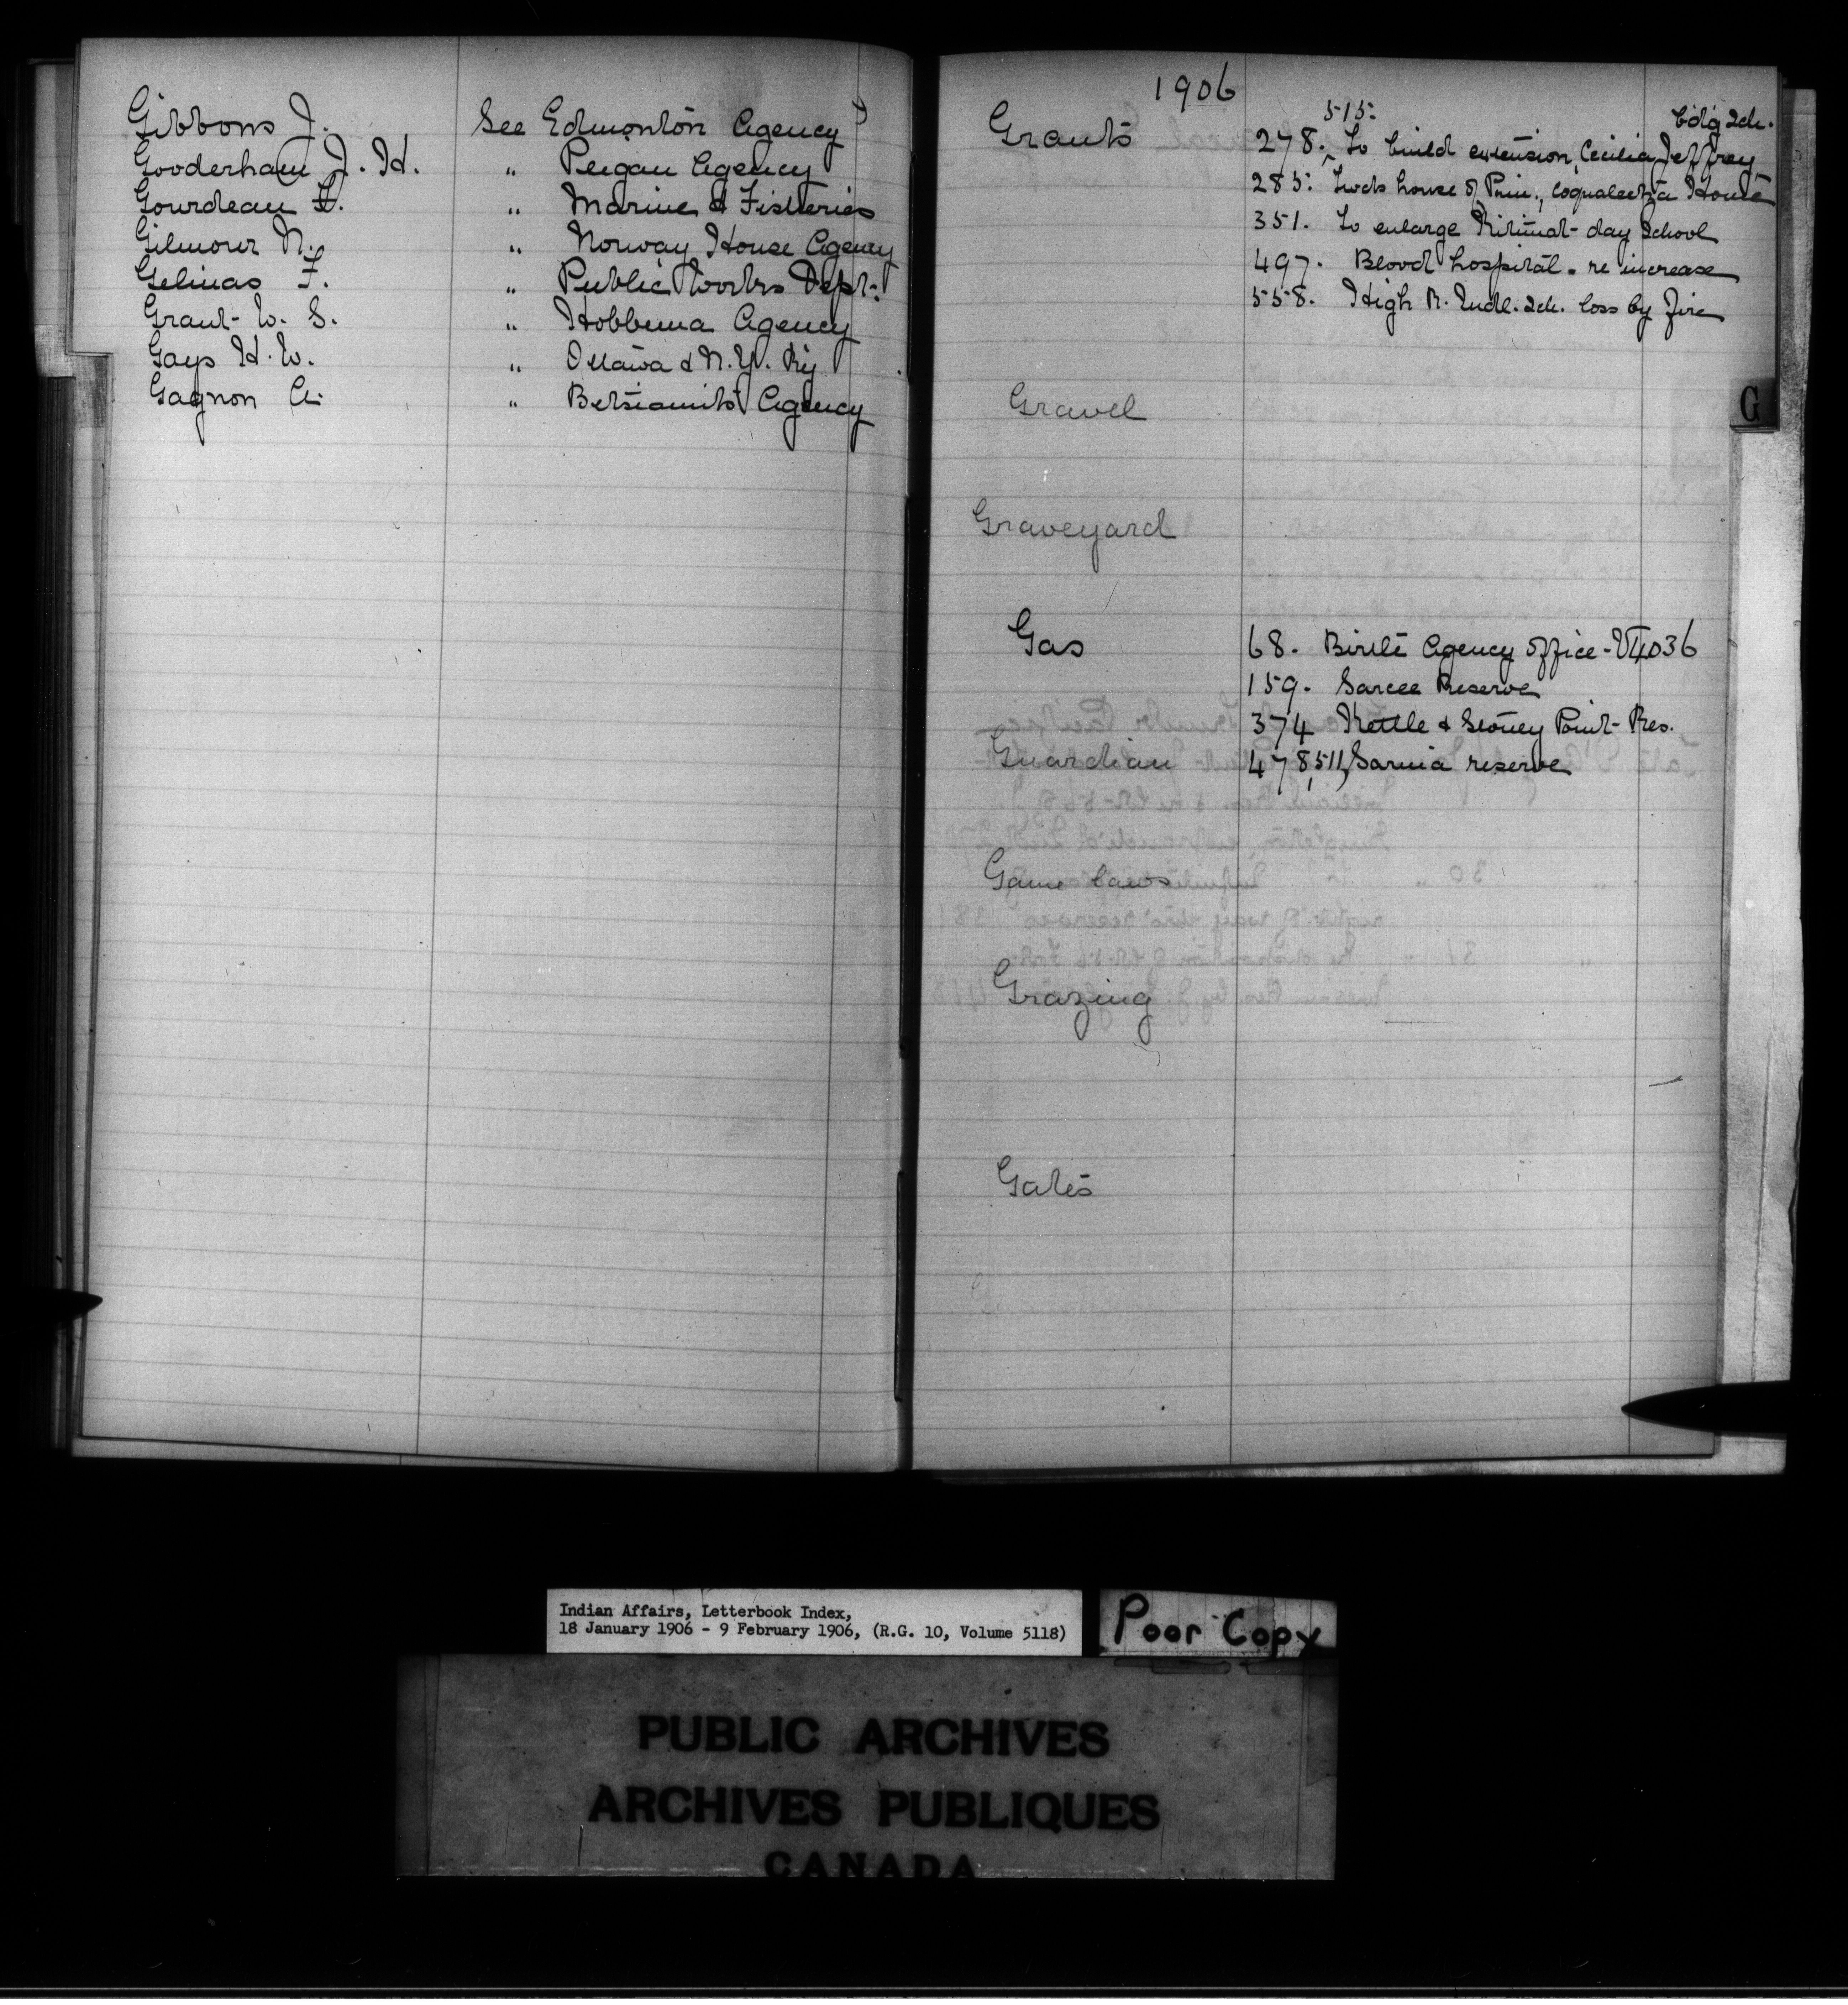 Gibbons J. See Edmonton Agency
Gooderham J. H. " Peigan Agency
Gourdeau F. " Marine & Fisheries
Gilmour N. " Norway House Agency
Gelinas F. " Public Works Dept.
Grant W. S. " Hobbema Agency
Gays H. W. " Ottawa & N.Y. Ry
Gagnon A. " Betsiamits Agency
1906
515. Bdg Sch.
Grants 278. To build extension Cecilia Jeffrey
285. house of Prin., Coqualeetza Home
351. To enlarge Kitimat day School
497. Blood hospital. re increase
558. High R. Indl. Sch. loss by fire
Gravel
G
Graveyard
Gas 68. Birtle Agency Office
159. Sarcee Reserve
374 Kettle & Stoney Point Res.
Guardian 478, 511, Sarnia reserve
Game laws
Grazing
Gates
Indian Affairs, Letterbook Index,
18 January 1906 - 9 February 1906, (R.G. 10, Volume 5118)
Poor Copy
PUBLIC ARCHIVES
ARCHIVES PUBLIQUES
CANADA